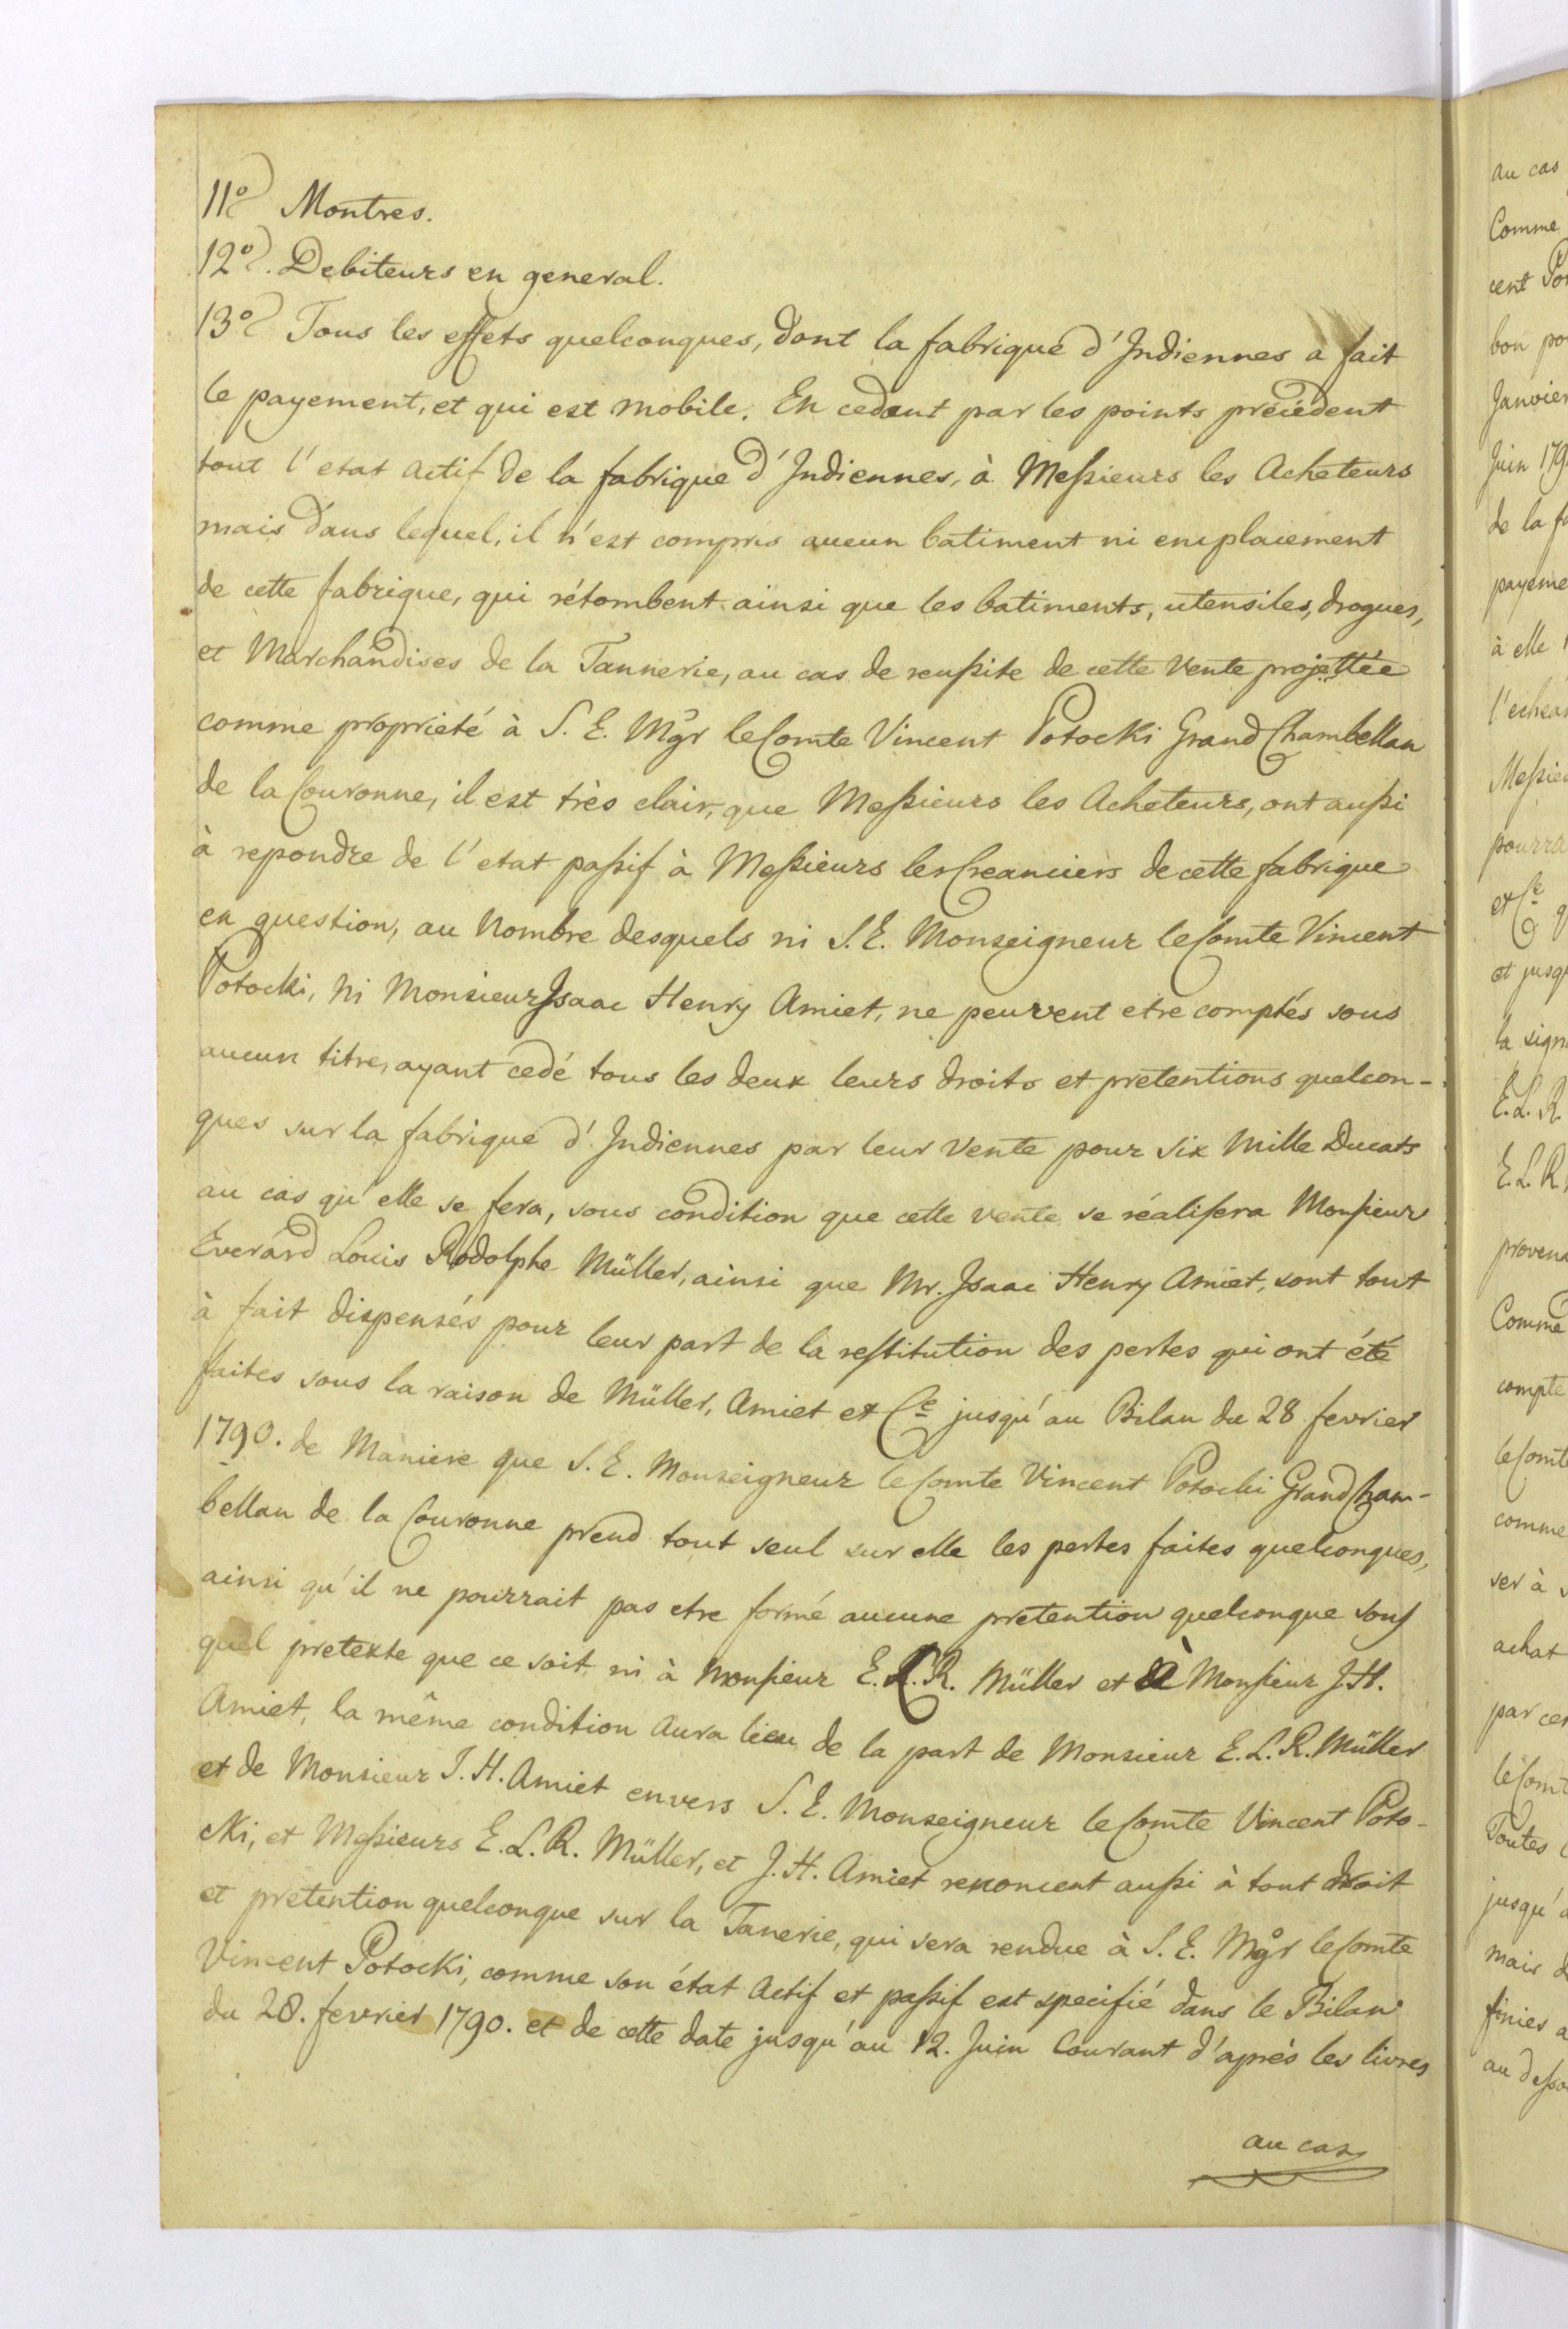 11º) Montres.
12º). Debiteurs en general.
13º) Tous les effets quelconques, dont la fabrique d'Indiennes a fait
le payement, et qui est mobile. En cedant par les points précédent
tout l'etat actif de la fabrique d'Indiennes, à Meßieurs les Acheteurs
mais dans lequel, il n'est compris aucun batiment ni emplacement
de cette fabrique, qui rétombent ainsi que les batiments, utensiles, drogues,
et Marchandises de la Tannerie, au cas de reußite de cette Vente projettée
comme propriété à S. E. Mgr le Comte Vincent Potocki Grand Chambellan
de la Couronne, il est très clair, que Meßieurs les Acheteurs, ont außi
à repondre de l'etat paßif à Meßieurs les Creanciers de cette fabrique
en question, au Nombre desquels ni S. E. Monseigneur le Comte Vincent
Potocki, ni Monsieur Isaac Henry Amiet, ne peuvent etre comptés sous
aucun titre, ayant cedé tous les deux leurs droits et pretentions quelcon-
ques sur la fabrique d'Indiennes par leur Vente pour six Mille Ducats
au cas qu'elle se fera, sous condition que cette vente se réalisera Monsieur
Everard Louis Rodolphe Müller, ainsi que Mr. Isaac Henry Amiet, sont tout
à fait dispensés pour leur part de la restitution des pertes qui ont été
faites sous la raison de Müller, Amiet et Ce jusqu'au Bilan du 28 fevrier
1790. de Maniere que S. E. Monseigneur le Comte Vincent Potocki Grand Cham-
bellan de la Couronne prend tout seul sur elle les pertes faites quelconques,
ainsi qu'il ne pourrait pas etre formé aucune pretention quelconque sous
quel pretexte que ce soit, ni à Monsieur E. L. R. Müller et à Monsieur J. H.
Amiet, la même condition aura lieu de la part de Monsieur E. L. R. Müller
et de Monsieur J. H. Amiet envers S. E. Monseigneur le Comte Vincent Poto-
cki, et Meßieurs E. L. R. Müller, et J. H. Amiet renoncent außi à tout droit
et pretention quelconque sur la Tanerie, qui sera rendue à S. E. Mgr le Comte
Vincent Potocki, comme son état actif et paßif est specifié dans le Bilan
du 28. fevrier 1790. et de cette date jusqu'au 12. Juin Courant d'aprés les livres
au cas
au cas
Comme
cent
bon
Janvier
Juin
de la
à elle
et Ce
et
la
E. L. R.
E. L. R.
Comme
compte
le
comme
ser à
achat
par
le
Toutes
jusqu'
mais
finies
au